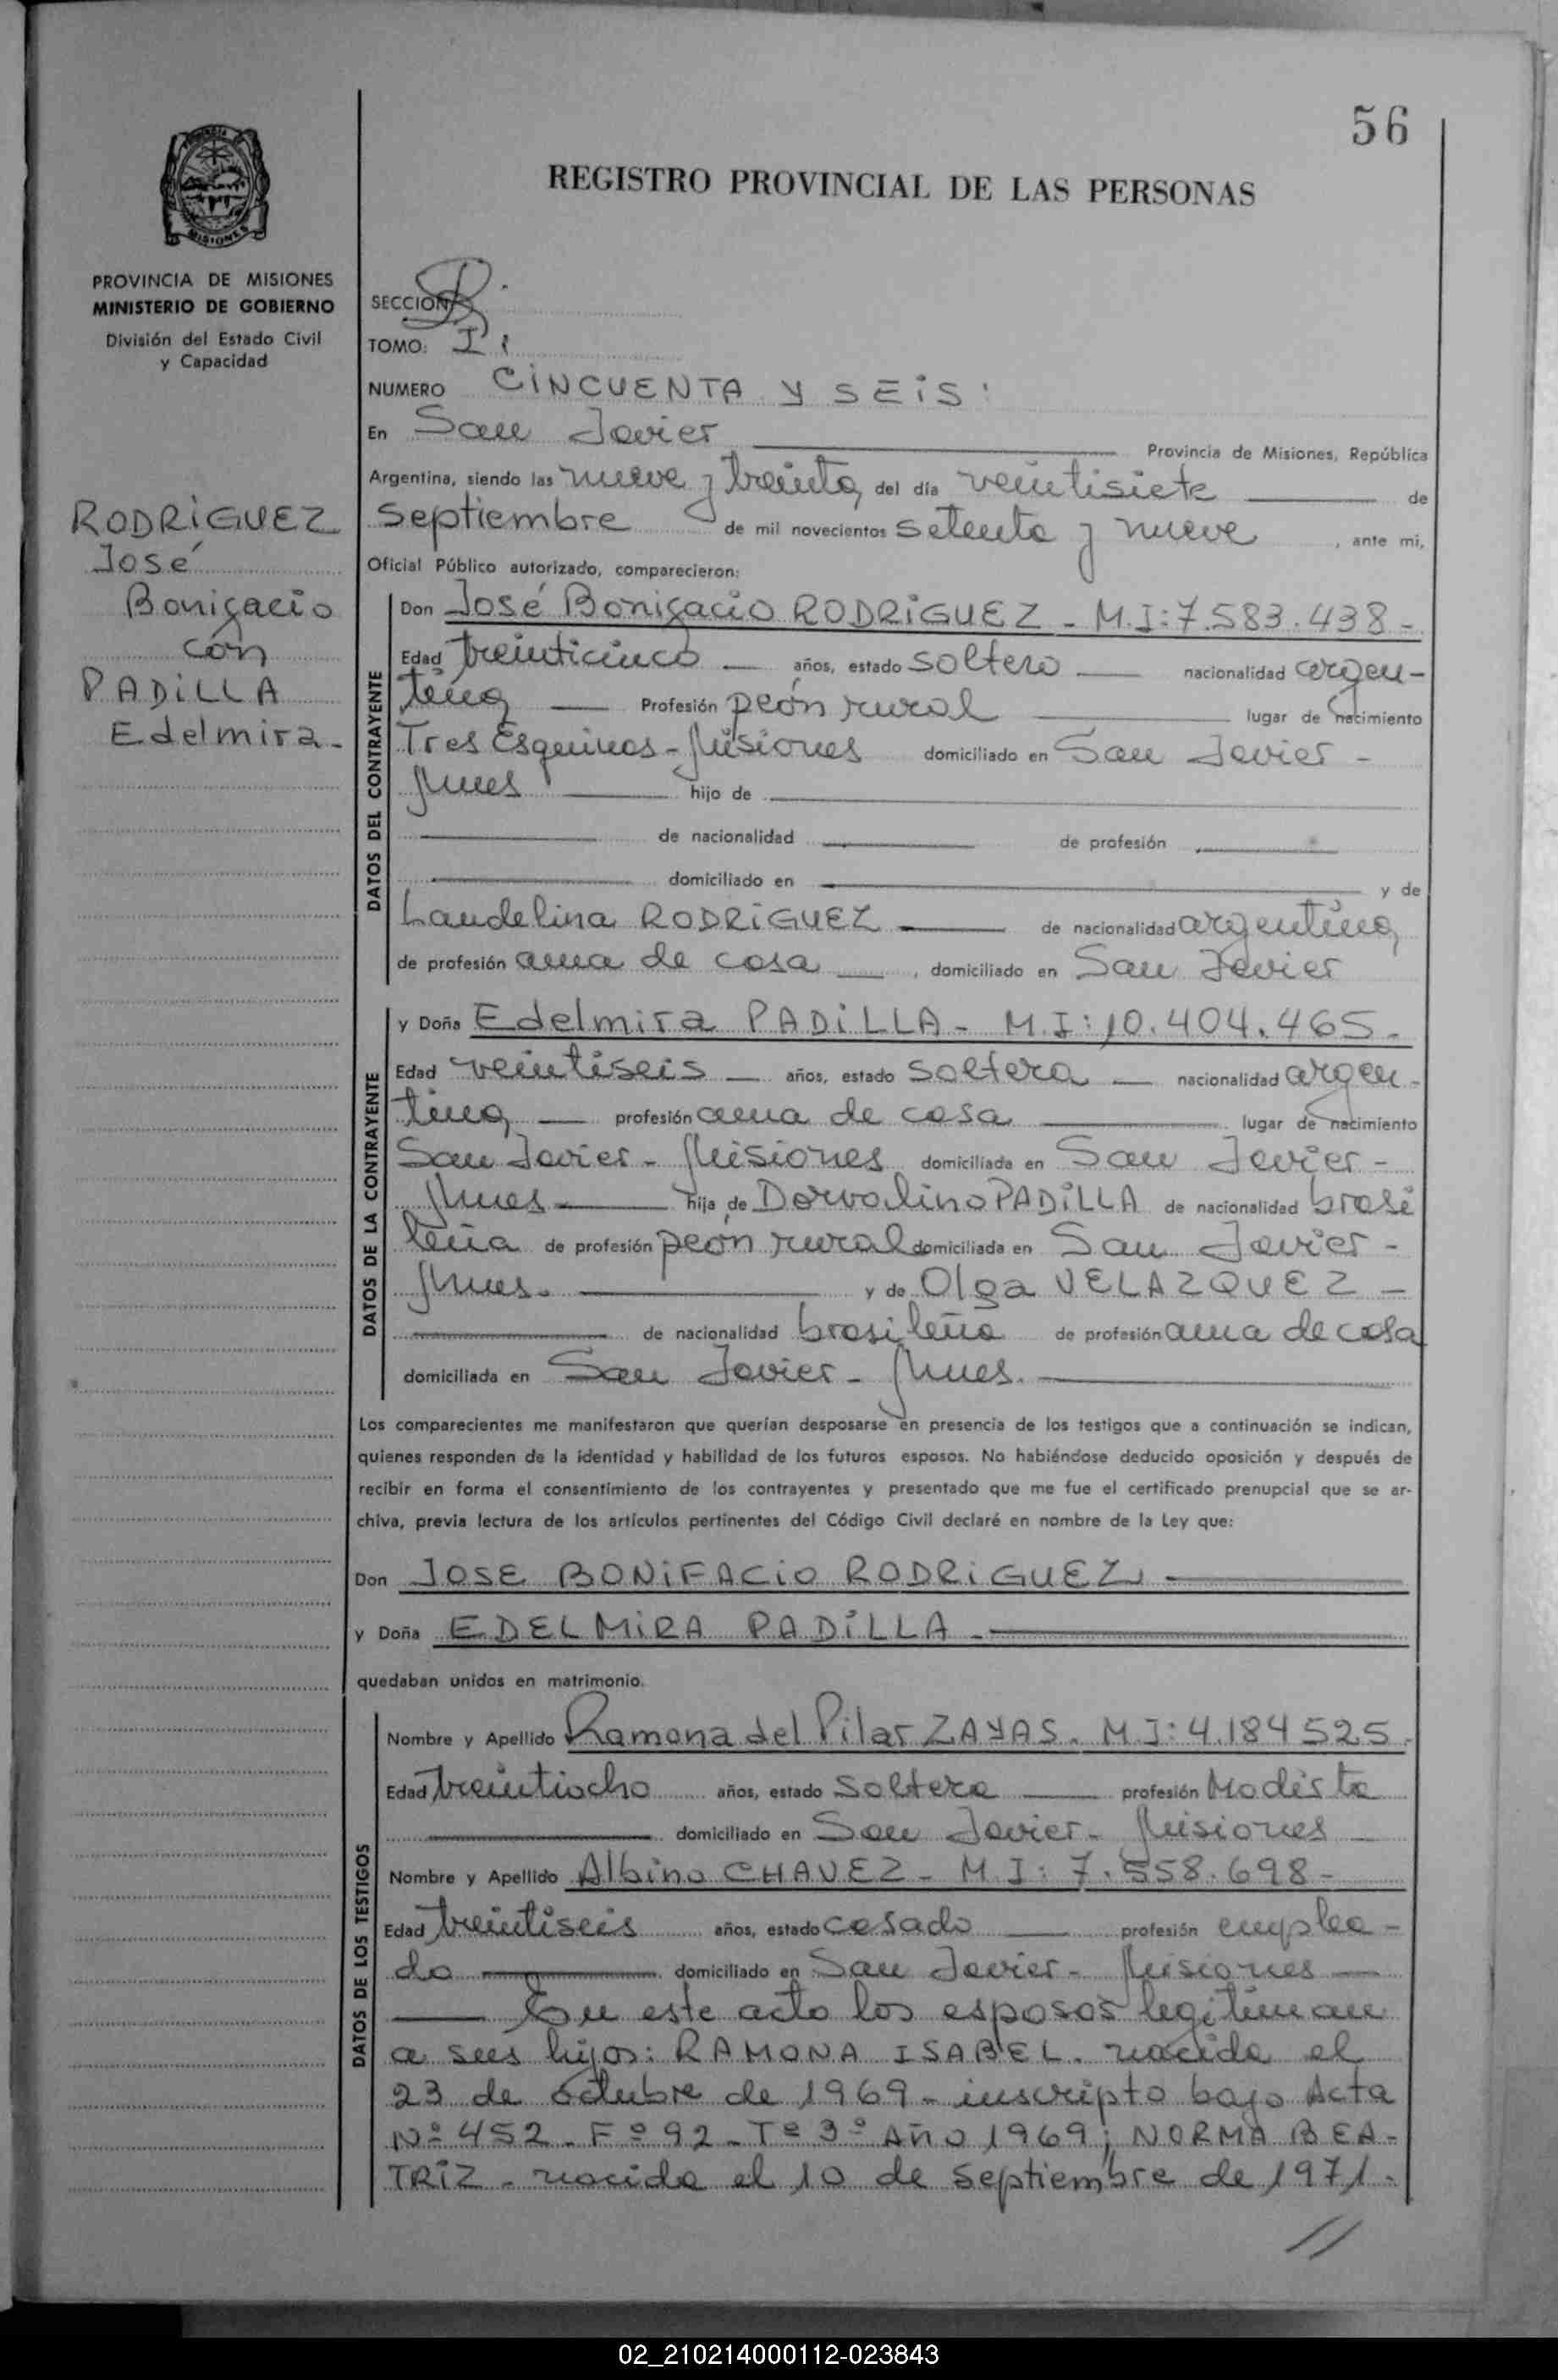 56
REGISTRO PROVINCIAL DE LAS PERSONAS
MISIONES
PROVINCIA DE MISIONES
MINISTERIO DE GOBIERNO
División del Estado Civil
y Capacidad
RODRIGUEZ
José
Bonifacio
con
PADILLA
Edelmira -
SECCION
TOMO: I
NUMERO CINCUENTA Y SEIS
En San Javier Provincia de Misiones, República
Argentina, siendo las nueve y treinta, del día veintisiete de
Septiembre de mil novecientos setenta y nueve , ante mi,
Oficial Público autorizado, comparecieron:
DATOS DEL CONTRAYENTE
Don José Bonifacio RODRIGUEZ - M.I: 7.583.438 -
Edad treinticinco años, estado soltero nacionalidad argen-
tina, Profesión peón rural lugar de nacimiento
Tres Esquinas - Misiones domiciliado en San Javier -
Mnes hijo de
de nacionalidad de profesión
domiciliado en y de
Laudelina RODRIGUEZ de nacionalidad argentina,
de profesión ama de casa , domiciliado en San Javier
DATOS DE LA CONTRAYENTE
y Doña Edelmira PADILLA - M.I: 10.404.465 -
Edad veintiseis años, estado soltera nacionalidad argen-
tina, profesión ama de casa lugar de nacimiento
San Javier - Misiones domiciliada en San Javier -
Mnes - hija de Dorvalino PADILLA de nacionalidad brasi
leña de profesión peón rural domiciliada en San Javier -
Mnes. y de Olga VELAZQUEZ -
de nacionalidad brasileña de profesión ama de casa
domiciliada en San Javier - Mnes.
Los comparecientes me manifestaron que querían desposarse en presencia de los testigos que a continuación se indican,
quienes responden de la identidad y habilidad de los futuros esposos. No habiéndose deducido oposición y después de
recibir en forma el consentimiento de los contrayentes y presentado que me fue el certificado prenupcial que se ar-
chiva, previa lectura de los artículos pertinentes del Código Civil declaré en nombre de la Ley que:
Don JOSE BONIFACIO RODRIGUEZ
y Doña EDELMIRA PADILLA
quedaban unidos en matrimonio.
DATOS DE LOS TESTIGOS
Nombre y Apellido Ramona del Pilar ZAYAS. M.I: 4.184525.
Edad treintiocho años, estado soltera profesión Modista
domiciliado en San Javier - Misiones
Nombre y Apellido Albino CHAVEZ - M.I: 7.558.698 -
Edad treintiseis años, estado casado profesión emplea-
do domiciliado en San Javier - Misiones
En este acto los esposos legitiman
a sus hijos: RAMONA ISABEL. nacida el
23 de octubre de 1969 - inscripto bajo Acta
Nº 452 - Fº 92 - Tº 3º Año 1969; NORMA BEA-
TRIZ - nacida el 10 de septiembre de 1971 -
//
02_210214000112-023843